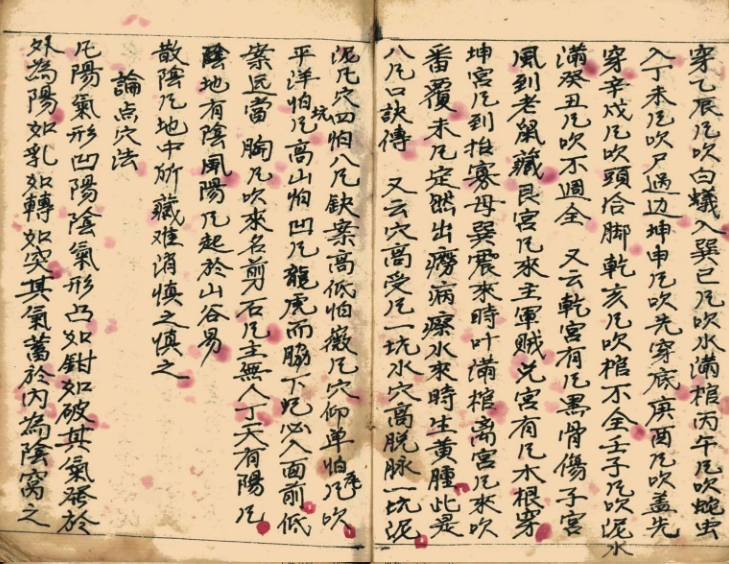 穿乙辰凡吹白蟻入巽巳凡吹水滿棺丙午凡吹蛇虫
入丁未凡吹尸過边坤申凡吹先穿底庚酉凡吹盖先
穿辛戌凡吹頭合脚乾亥凡吹棺不全壬子凡吹泥水
滿癸丑凡吹不週全 又云乾宮有凡黑骨傷子宮
風到老鼠藏艮宮凡來主軍賊兌宮有凡木根穿
坤宮凡到損寡母巽震來時叶滿棺离宮凡來吹
番覆未凡定然出癆病瘵水來時生黃腫此是
八凡口訣傳 又云穴高受凡一坑水穴高脱脉一坑泥
泥凡穴四怕八凡缺案高低怕嶶凡穴仰单怕凡吹
平洋怕坑凡高山怕凹凡龍虎而脇下凡必入面前低
案远當胸凡吹來名剪石凡主無人丁天有陽凡
陰地有陰風陽凡起於山谷易
散陰凡地中所藏难消慎之慎之
論点穴法
凡陽氣形凹陽陰氣形凸如鉗如破其氣發於
外為陽如乳如轉如突其氣蓄於內為陰窩之